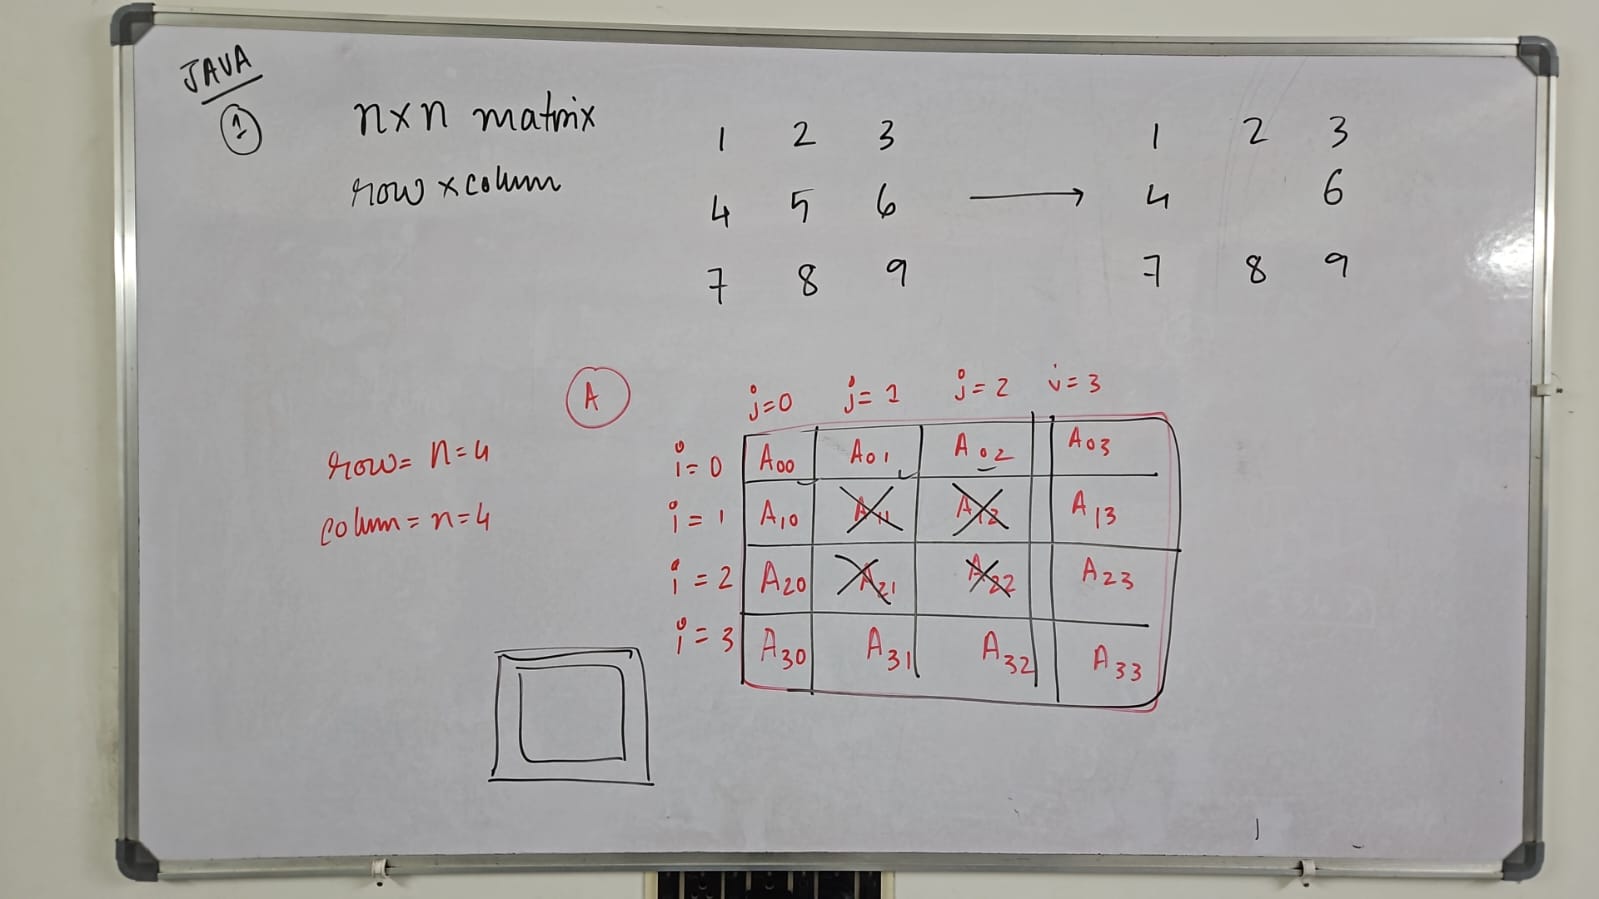 JAVA
1
nxn matrix
row x column
1 2 3
4 5 6
7 8 9
→
1 2 3
4 6
7 8 9
A
row= n=4
column = n=4
j=0 j=1 j=2 i=3
i=0 A00 A01 A02 A03
i=1 A10 A11 A12 A13
i=2 A20 A21 A22 A23
i=3 A30 A31 A32 A33